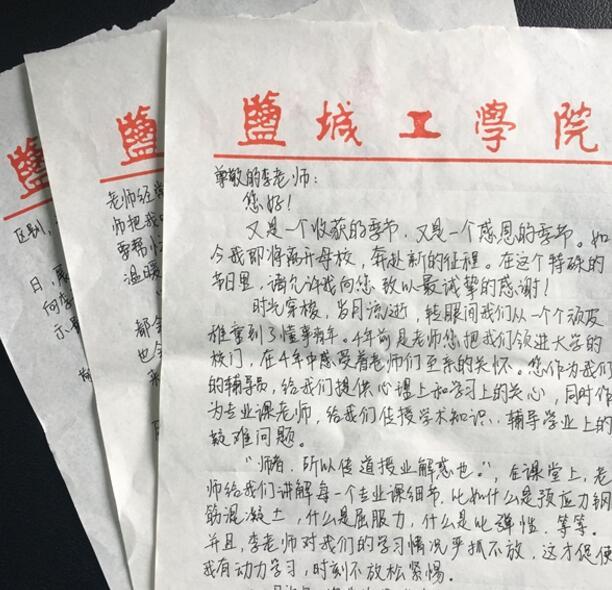 鹽城工學院
尊敬的李老师：
您好！
又是一个收获的季节，又是一个感恩的季节。如
今我即将离开母校，奔赴新的征程。在这个特殊的
节日里，请允许我向您致以最诚挚的感谢！
时光穿梭，岁月流逝，转眼间我们从一个个顽皮
雅童到了懂事青年。4年前是老师您把我们领进大学的
校门，在4年中感受着老师们至亲的关怀。您作为我们
的辅导员，给我们提供心理上和学习上的关心，同时作
为专业课老师，给我们传授学术知识、辅导学业上的
疑难问题。
"师者，所以传道授业解惑也。"，在课堂上，老
师给我们讲解每一个专业课细节，比如什么是预应力钢
筋混凝土，什么是屈服力，什么是比弹性，等等。
并且，李老师对我们的学习情况严抓不放，这才促使
我有动力学习，时刻不放松紧惕。
鹽
老师经常
师把我
要帮忙
温暖
都会
也会
鹽
区别，
日，
何李
示